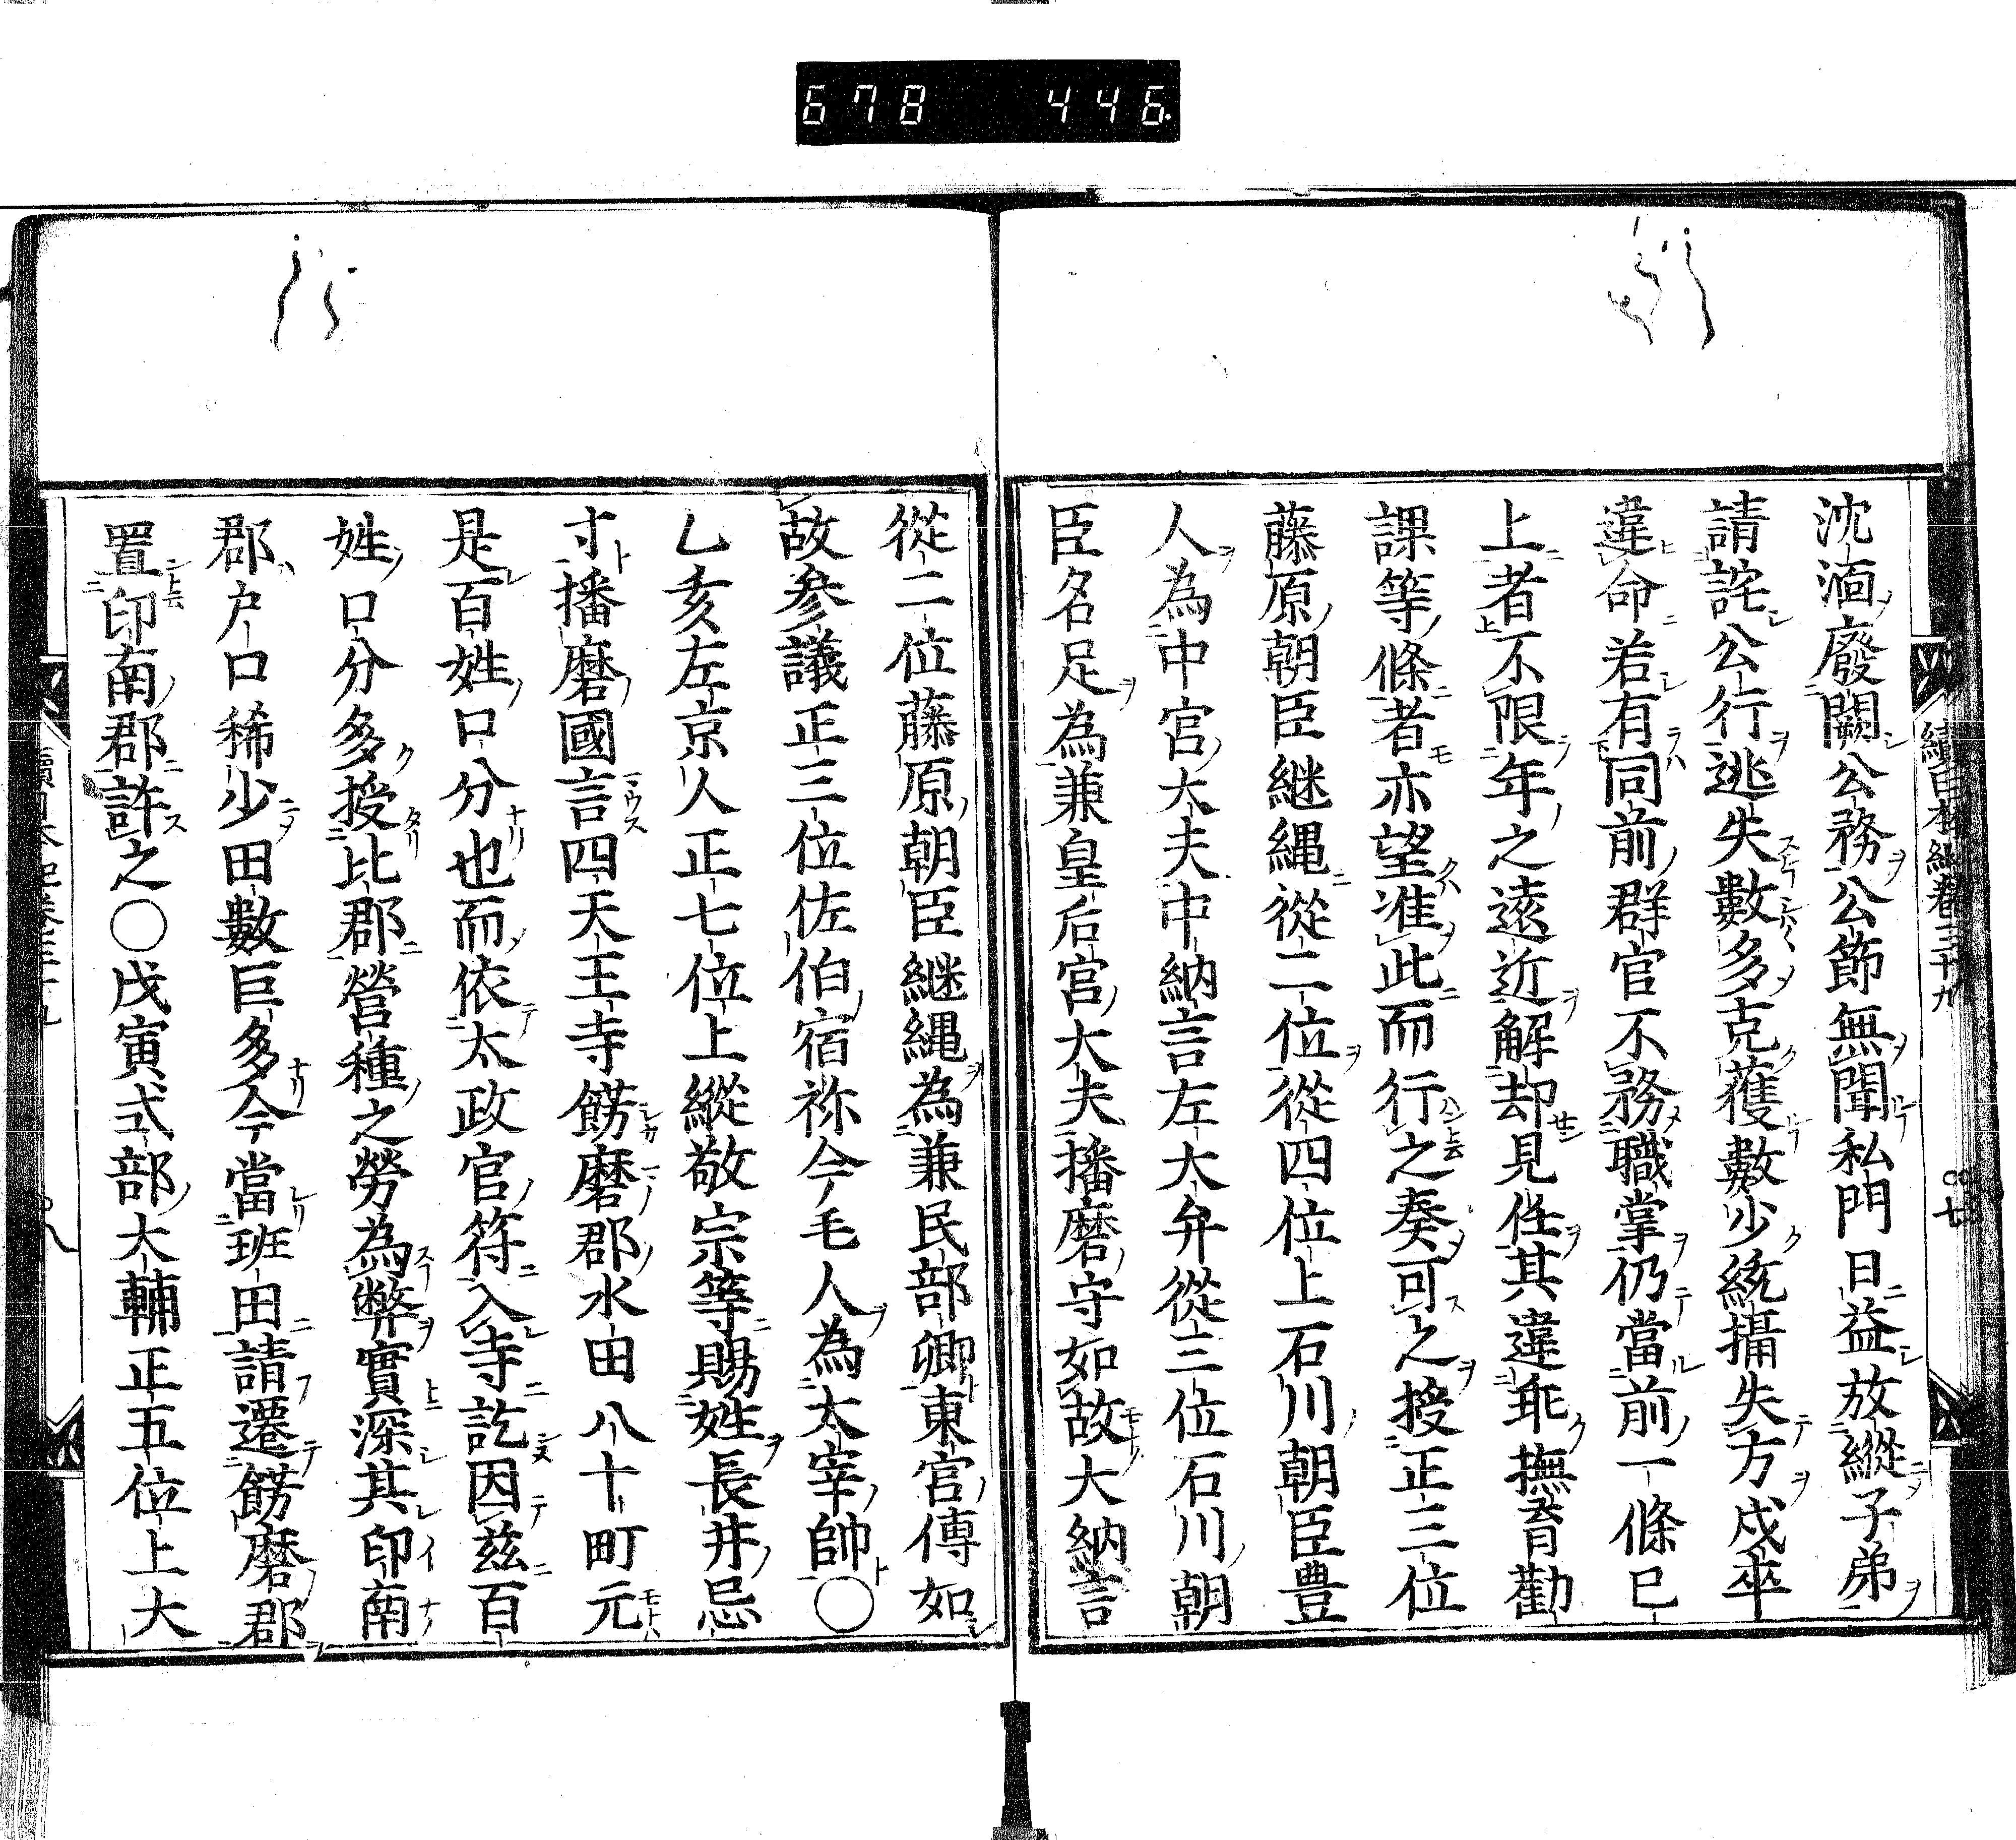 678 446
續日本紀卷三十九
七
沈湎廢闕公務公節無聞私門日益放縱子弟
請託公行逃失數多克獲數少統攝失方戍卒
違命若有同前群官不務職掌仍當前一條已
上者不限年之遠近解却見任其違乖撫育勸
課等條者亦望准此而行之奏可之授正三位
藤原朝臣継縄從二位從四位上石川朝臣豊
人為中宮大夫中納言左大弁從三位石川朝
臣名足為兼皇后宮大夫播磨守如故大納言
從二位藤原朝臣継縄為兼民部卿東宮傅如
故參議正三位佐伯宿祢今毛人為大宰帥〇
乙亥左京人正七位上縱敬宗等賜姓長井忌
寸播磨國言四天王寺餝磨郡水田八十町元
是百姓口分也而依太政官符入寺訖因茲百
姓口分多授比郡營種之勞為弊實深其印南
郡戸口稀少田數巨多今當班田請遷餝磨郡
置印南郡許之〇戊寅式部大輔正五位上大
八